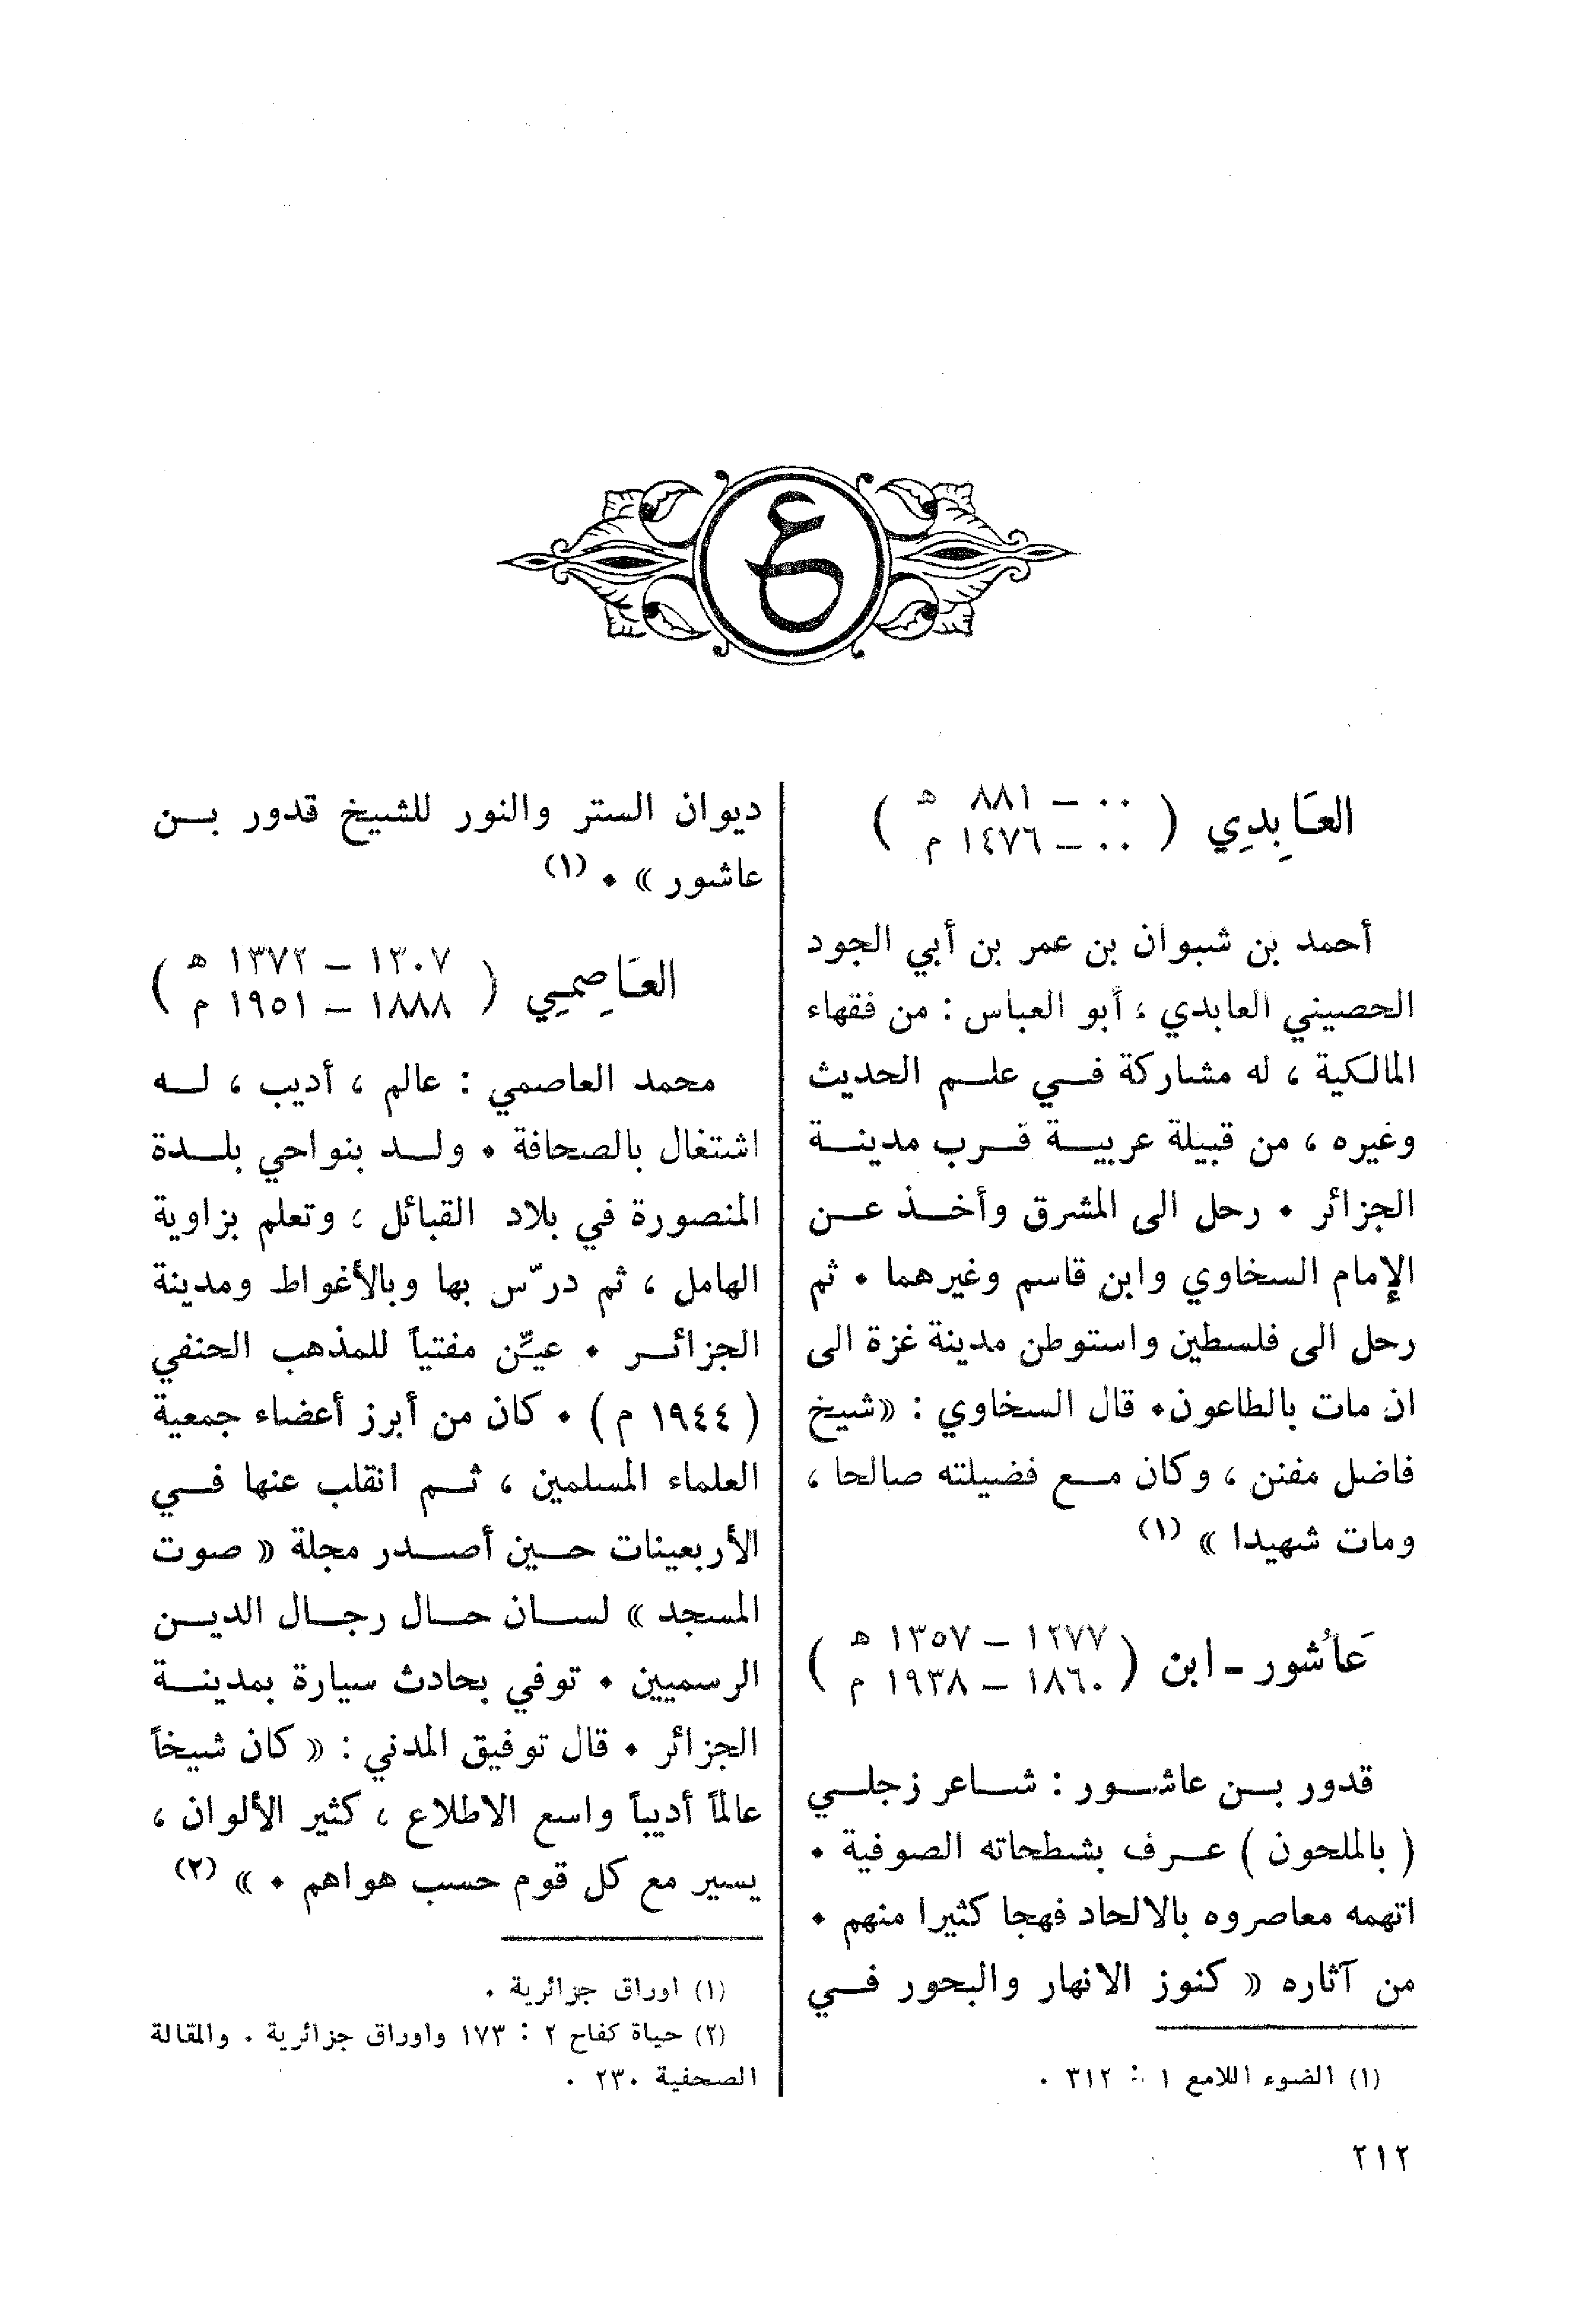 ع
العَابِدِي ( ٠٠ – ٨٨١ هـ
٠٠ – ١٤٧٦ م )
أحمد بن شبوان بن عمر بن أبي الجود
الحصيني العابدي ، أبو العباس : من فقهاء
المالكية ، له مشاركة في علم الحديث
وغيره ، من قبيلة عربية قرب مدينة
الجزائر . رحل الى المشرق وأخذ عن
الإمام السخاوي وابن قاسم وغيرهما . ثم
رحل الى فلسطين واستوطن مدينة غزة الى
ان مات بالطاعون. قال السخاوي : «شيخ
فاضل مفنن ، وكان مع فضيلته صالحا ،
ومات شهيدا » (١)
عَاشُور ـ ابن ( ١٢٧٧ – ١٣٥٧ هـ
١٨٦٠ – ١٩٣٨ م )
قدور بن عاشور : شاعر زجلي
( بالملحون ) عرف بشطحاته الصوفية .
اتهمه معاصروه بالالحاد فهجا كثيرا منهم .
من آثاره « كنوز الانهار والبحور في
(١) الضوء اللامع ١ : ٣١٢ .
ديوان الستر والنور للشيخ قدور بن
عاشور » . (١)
العَاصِمِي ( ١٣٠٧ – ١٣٧٢ هـ
١٨٨٨ – ١٩٥١ م )
محمد العاصمي : عالم ، أديب ، له
اشتغال بالصحافة . ولد بنواحي بلدة
المنصورة في بلاد القبائل ، وتعلم بزاوية
الهامل ، ثم درّس بها وبالأغواط ومدينة
الجزائر . عيّن مفتياً للمذهب الحنفي
( ١٩٤٤ م ) . كان من أبرز أعضاء جمعية
العلماء المسلمين ، ثم انقلب عنها في
الأربعينات حين أصدر مجلة « صوت
المسجد » لسان حال رجال الدين
الرسميين . توفي بحادث سيارة بمدينة
الجزائر . قال توفيق المدني : « كان شيخاً
عالماً أديباً واسع الاطلاع ، كثير الألوان ،
يسير مع كل قوم حسب هواهم . » (٢)
(١) اوراق جزائرية .
(٢) حياة كفاح ٢ : ١٧٣ واوراق جزائرية . والمقالة
الصحفية ٢٣٠ .
٢١٢